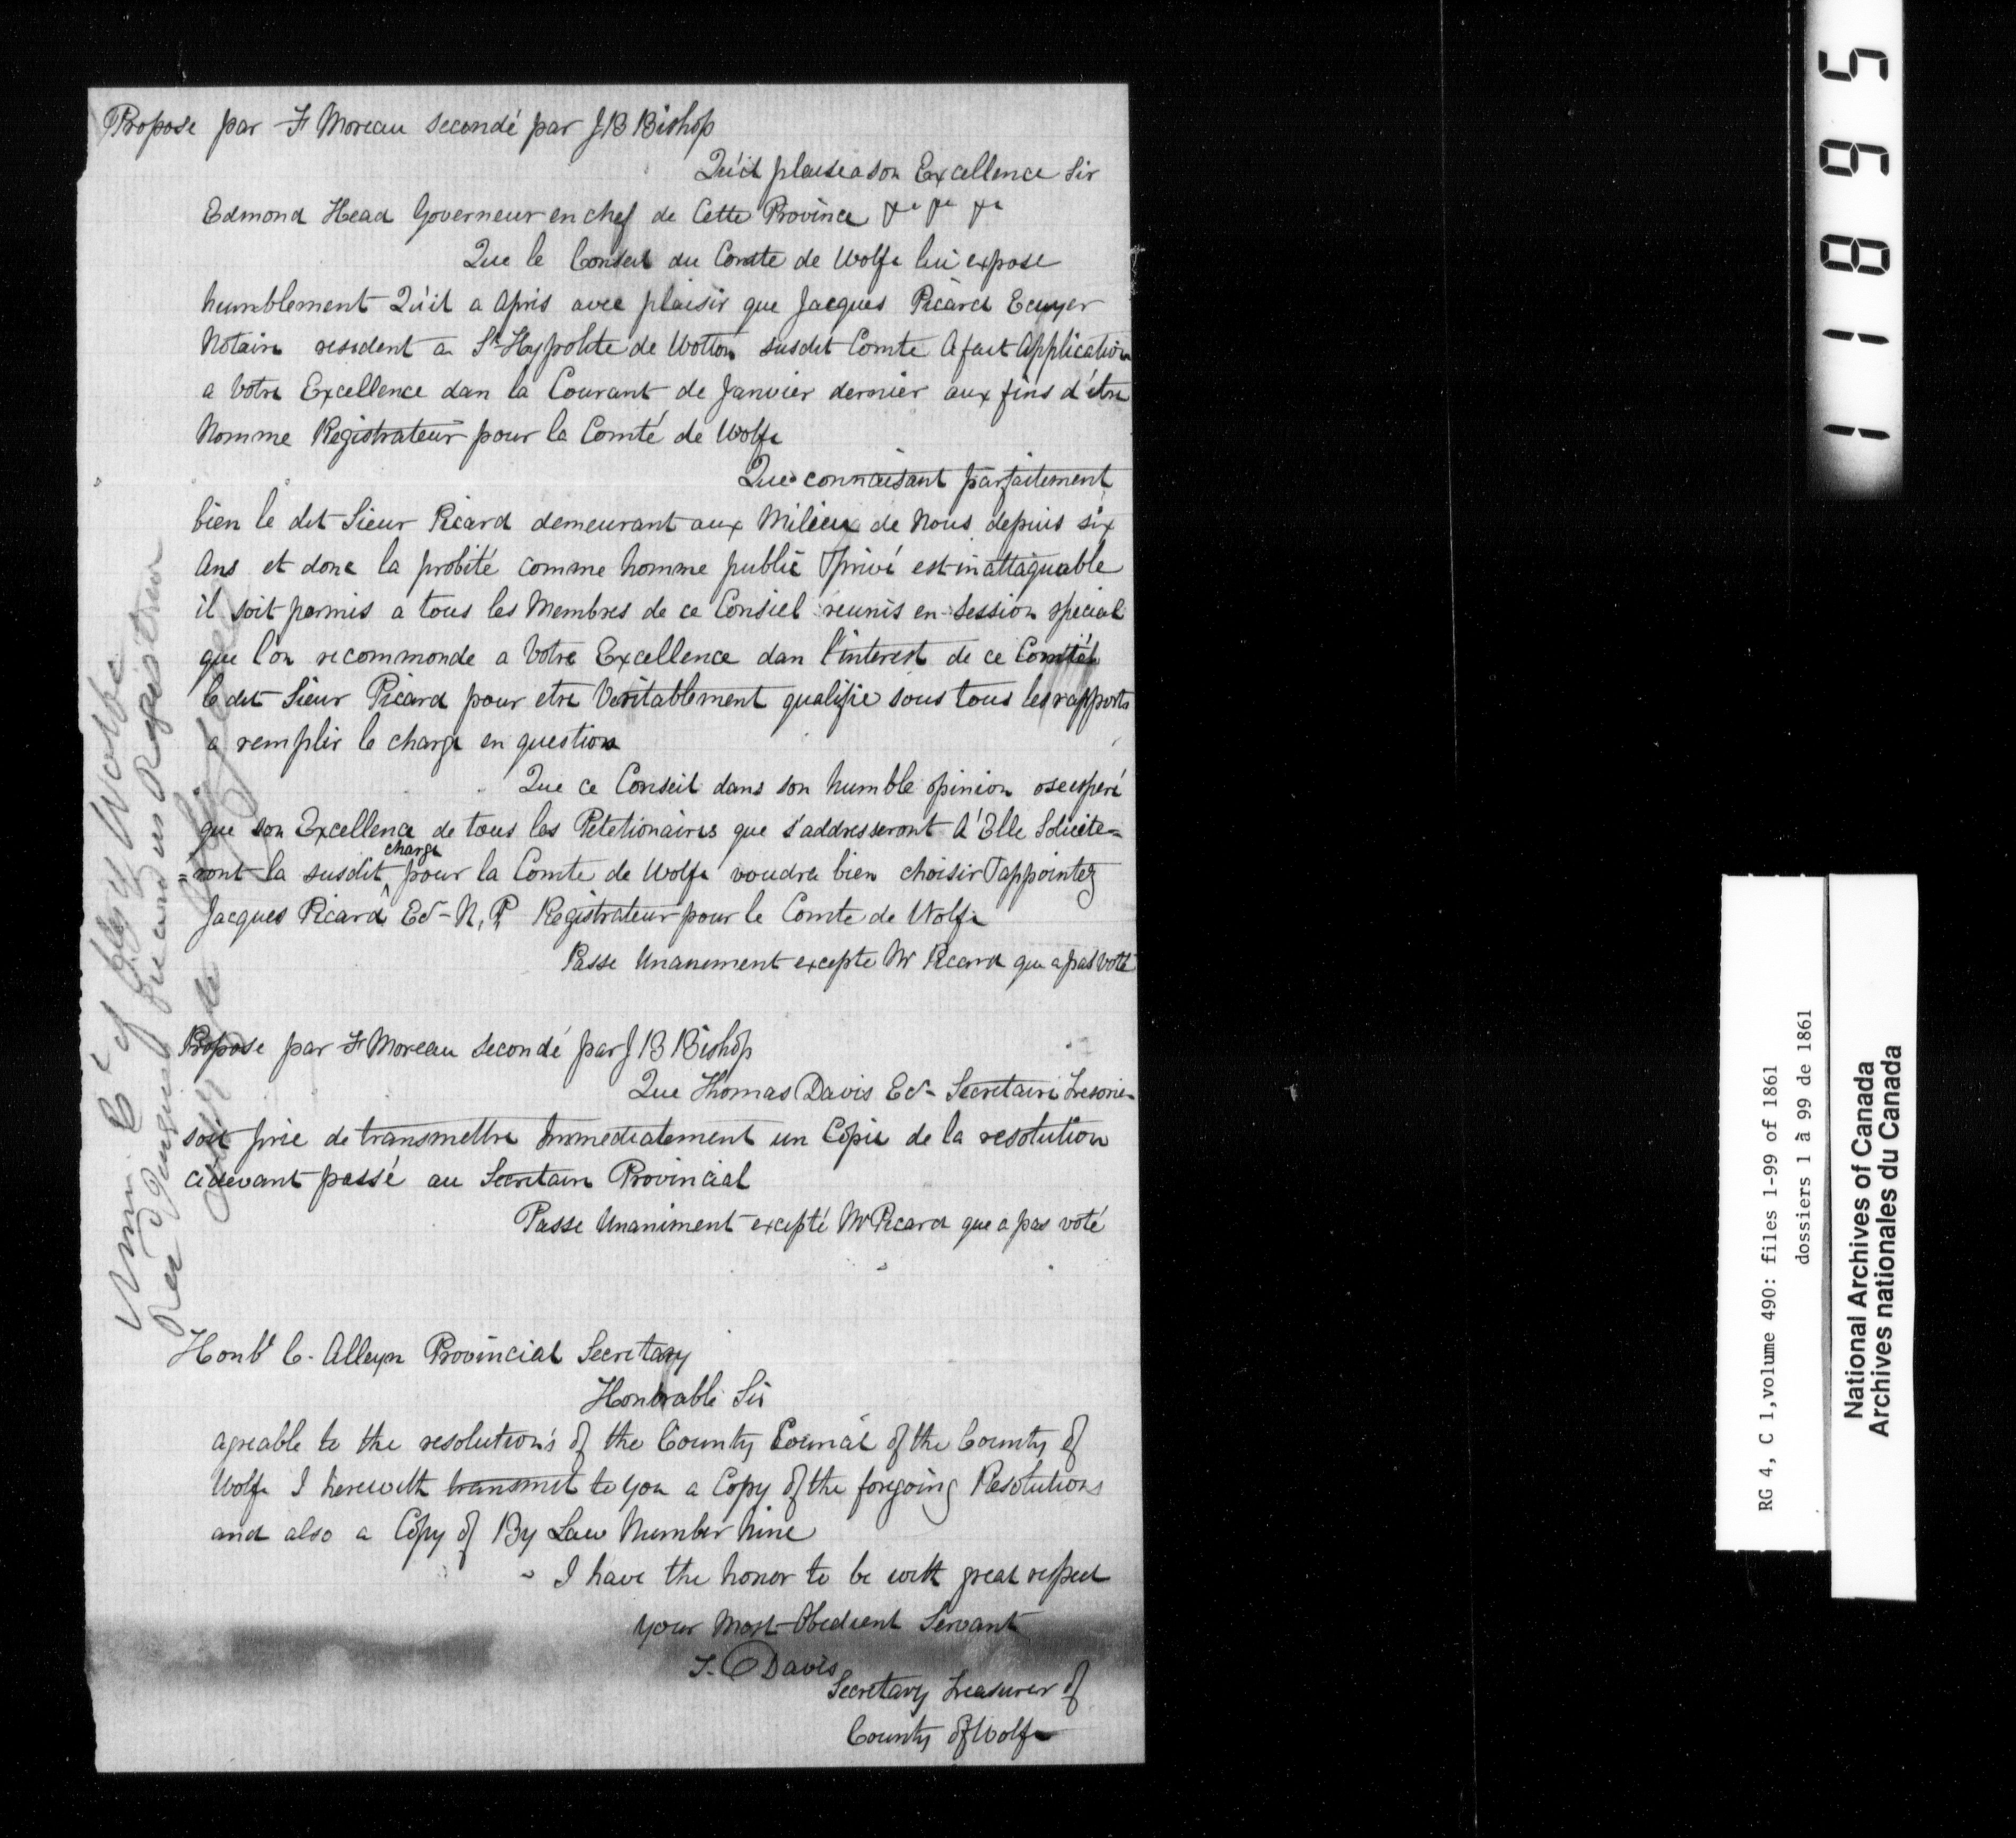 Propose par F Moreau secondé par J B Bishop
Qu'il plaise a son Excellence Sir
Edmond Head Governeur en chef de Cette Province &c &c &c
Que le Conseil du Comte de Wolfe lui expose
humblement Qu'il a apris avec plaisir que Jacques Picard Ecuyer
Notaire resident a St Hypolite de Wotton susdit Comte A fait Application
a Votre Excellence dan la Courant de Janvier dernier aux fins d'être
Nomme Registrateur pour la Comté de Wolfe
Que connaisant parfaitement
bien le dit Sieur Picard demeurant aux Milieu de Nous depuis six
Ans et donc la probité comme homme public & privé est inattaquable
il soit permis a tous les Membres de ce Consiel reunis en session special
que l'on recommonde a Votre Excellence dan l'interest de ce Comté
le dit Sieur Picard pour etre Veritablement qualifie sous tous les rapports
a remplir le charge en question
Que ce Conseil dans son humble opinion ose esperé
que son Excellence de tous les Petetionaires que s'addresseront A'Elle Solicite=
=ront la susdit charge pour la Comte de Wolfe voudra bien choisir & appointez
Jacques Picard Er N. P. Registrateur pour le Comte de Wolfe
Passe Unanement excepte Mr Picard que a pas voté
Propose par F Moreau secondé par J B Bishop
Que Thomas Davis Er Secretaire Tresorie
soit prie de transmettre Immediatement un Copie de la resolution
cidevant passé au Secretaire Provincial
Passe Unaniment excepté Mr Picard que a pas voté
Honbl C. Alleyn Provincial Secretary
Honorable Sir
agreable to the resolution's of the County Council of the County of
Wolfe I herewith transmit to you a Copy of the foregoing Resolutions
and also a Copy of By Law Number Nine
I have the honor to be with great respect
your Most Obedient Servant
T. Davis
Secretary Treasurer of
County of Wolfe
Wolfe
11895
RG 4, C 1,volume 490: files 1-99 of 1861
dossiers 1 à 99 de 1861
National Archives of Canada
Archives nationales du Canada